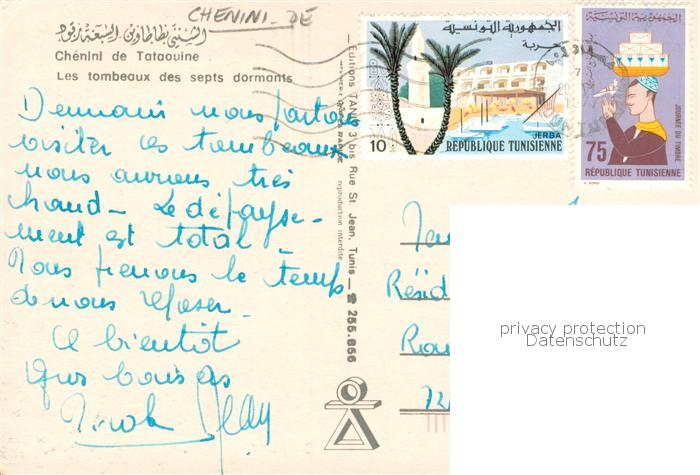 CHENINI - DE
الشنني بطاطاوين السبعة رقود
Chénini de Tataouine :
Les tombeaux des septs dormants
Demain nous partons
visiter les tombeaux
nous aurons très
chaud - Le dépayse-
ment est total
Nous prenons le temps
de nous reposer -
A bientôt
Gros baisers
Editions TANIT 3 bis Rue St Jean, Tunis - ☎ 255.856
reproduction interdite
الجمهورية التونسية
جربة
10
JERBA
REPUBLIQUE TUNISIENNE
الجمهورية التونسية
75
JOURNEE DU TIMBRE
RÉPUBLIQUE TUNISIENNE
Résid
72
privacy protection
Datenschutz